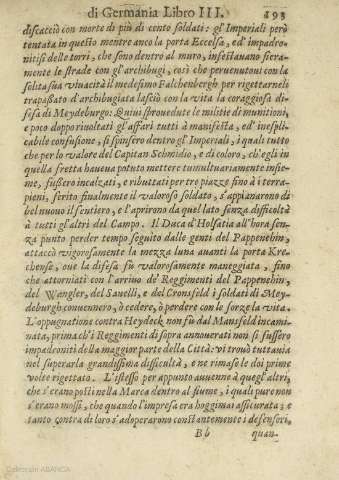 di Germania Libro III. 193
discacciò con morte di più di cento soldati: gl'Imperiali però
tentata in questo mentre anco la porta Eccelsa, ed'impadro-
nitisi delle torri, che sono dentro al muro, infestauano fiera-
mente le strade con gl'archibugi, così che peruenutoui con la
solita sua viuacità il medesimo Falchenbergh per rigettarneli
trapassato d'archibugiata lasciò con la vita la coraggiosa di-
fesa di Meydeburgo: Quiui sprouedute le militie di munitioni,
e poco dopo riuoltati gl'affari tutti à manifesta, ed'inespli-
cabile confusione, si spinsero dentro gl'Imperiali, i quali tutto
che per lo valore del Capitan Schmidio, e di coloro, ch'egli in
quella fretta haueua potuto mettere tumultuariamente insie-
me, fussero incalzati, e ributtati per tre piazze fino à i terra-
pieni, ferito finalmente il valoroso soldato, s'appianarono di
bel nuouo il sentiero, e l'aprirono da quel lato senza difficoltà
à tutti gl'altri del Campo. Il Duca d'Holsatia all'hora sen-
za punto perder tempo seguito dalle genti del Pappenehin,
attaccò vigorosamente la mezza luna auanti la porta Kre-
chense, oue la difesa fù valorosamente maneggiata, fino
che attorniati con l'arriuo de' Reggimenti del Pappenehin,
del Wangler, del Sauelli, e del Cronsfeld i soldati di Mey-
deburgh conuennero, ò cedere, ò perdere con le forze la vita.
L'oppugnatione contra Heydeck non fù dal Mansfeld incami-
nata, prima ch'i Reggimenti di sopra annouerati non si fussero
impadroniti della maggior parte della Città: vi trouò tuttauia
nel superarla grandissima difficultà, e ne rimase le doi prime
volte rigettato. L'istesso per appunto auuenne à quegl'altri,
che s'erano posti nella Marca dentro al fiume, i quali pure non
s'erano mossi, che quando l'impresa era hoggimai assicurata; e
tanto contra di loro s'adoperarono constantemente i defensori,
Bb quan-
Colección ABANCA